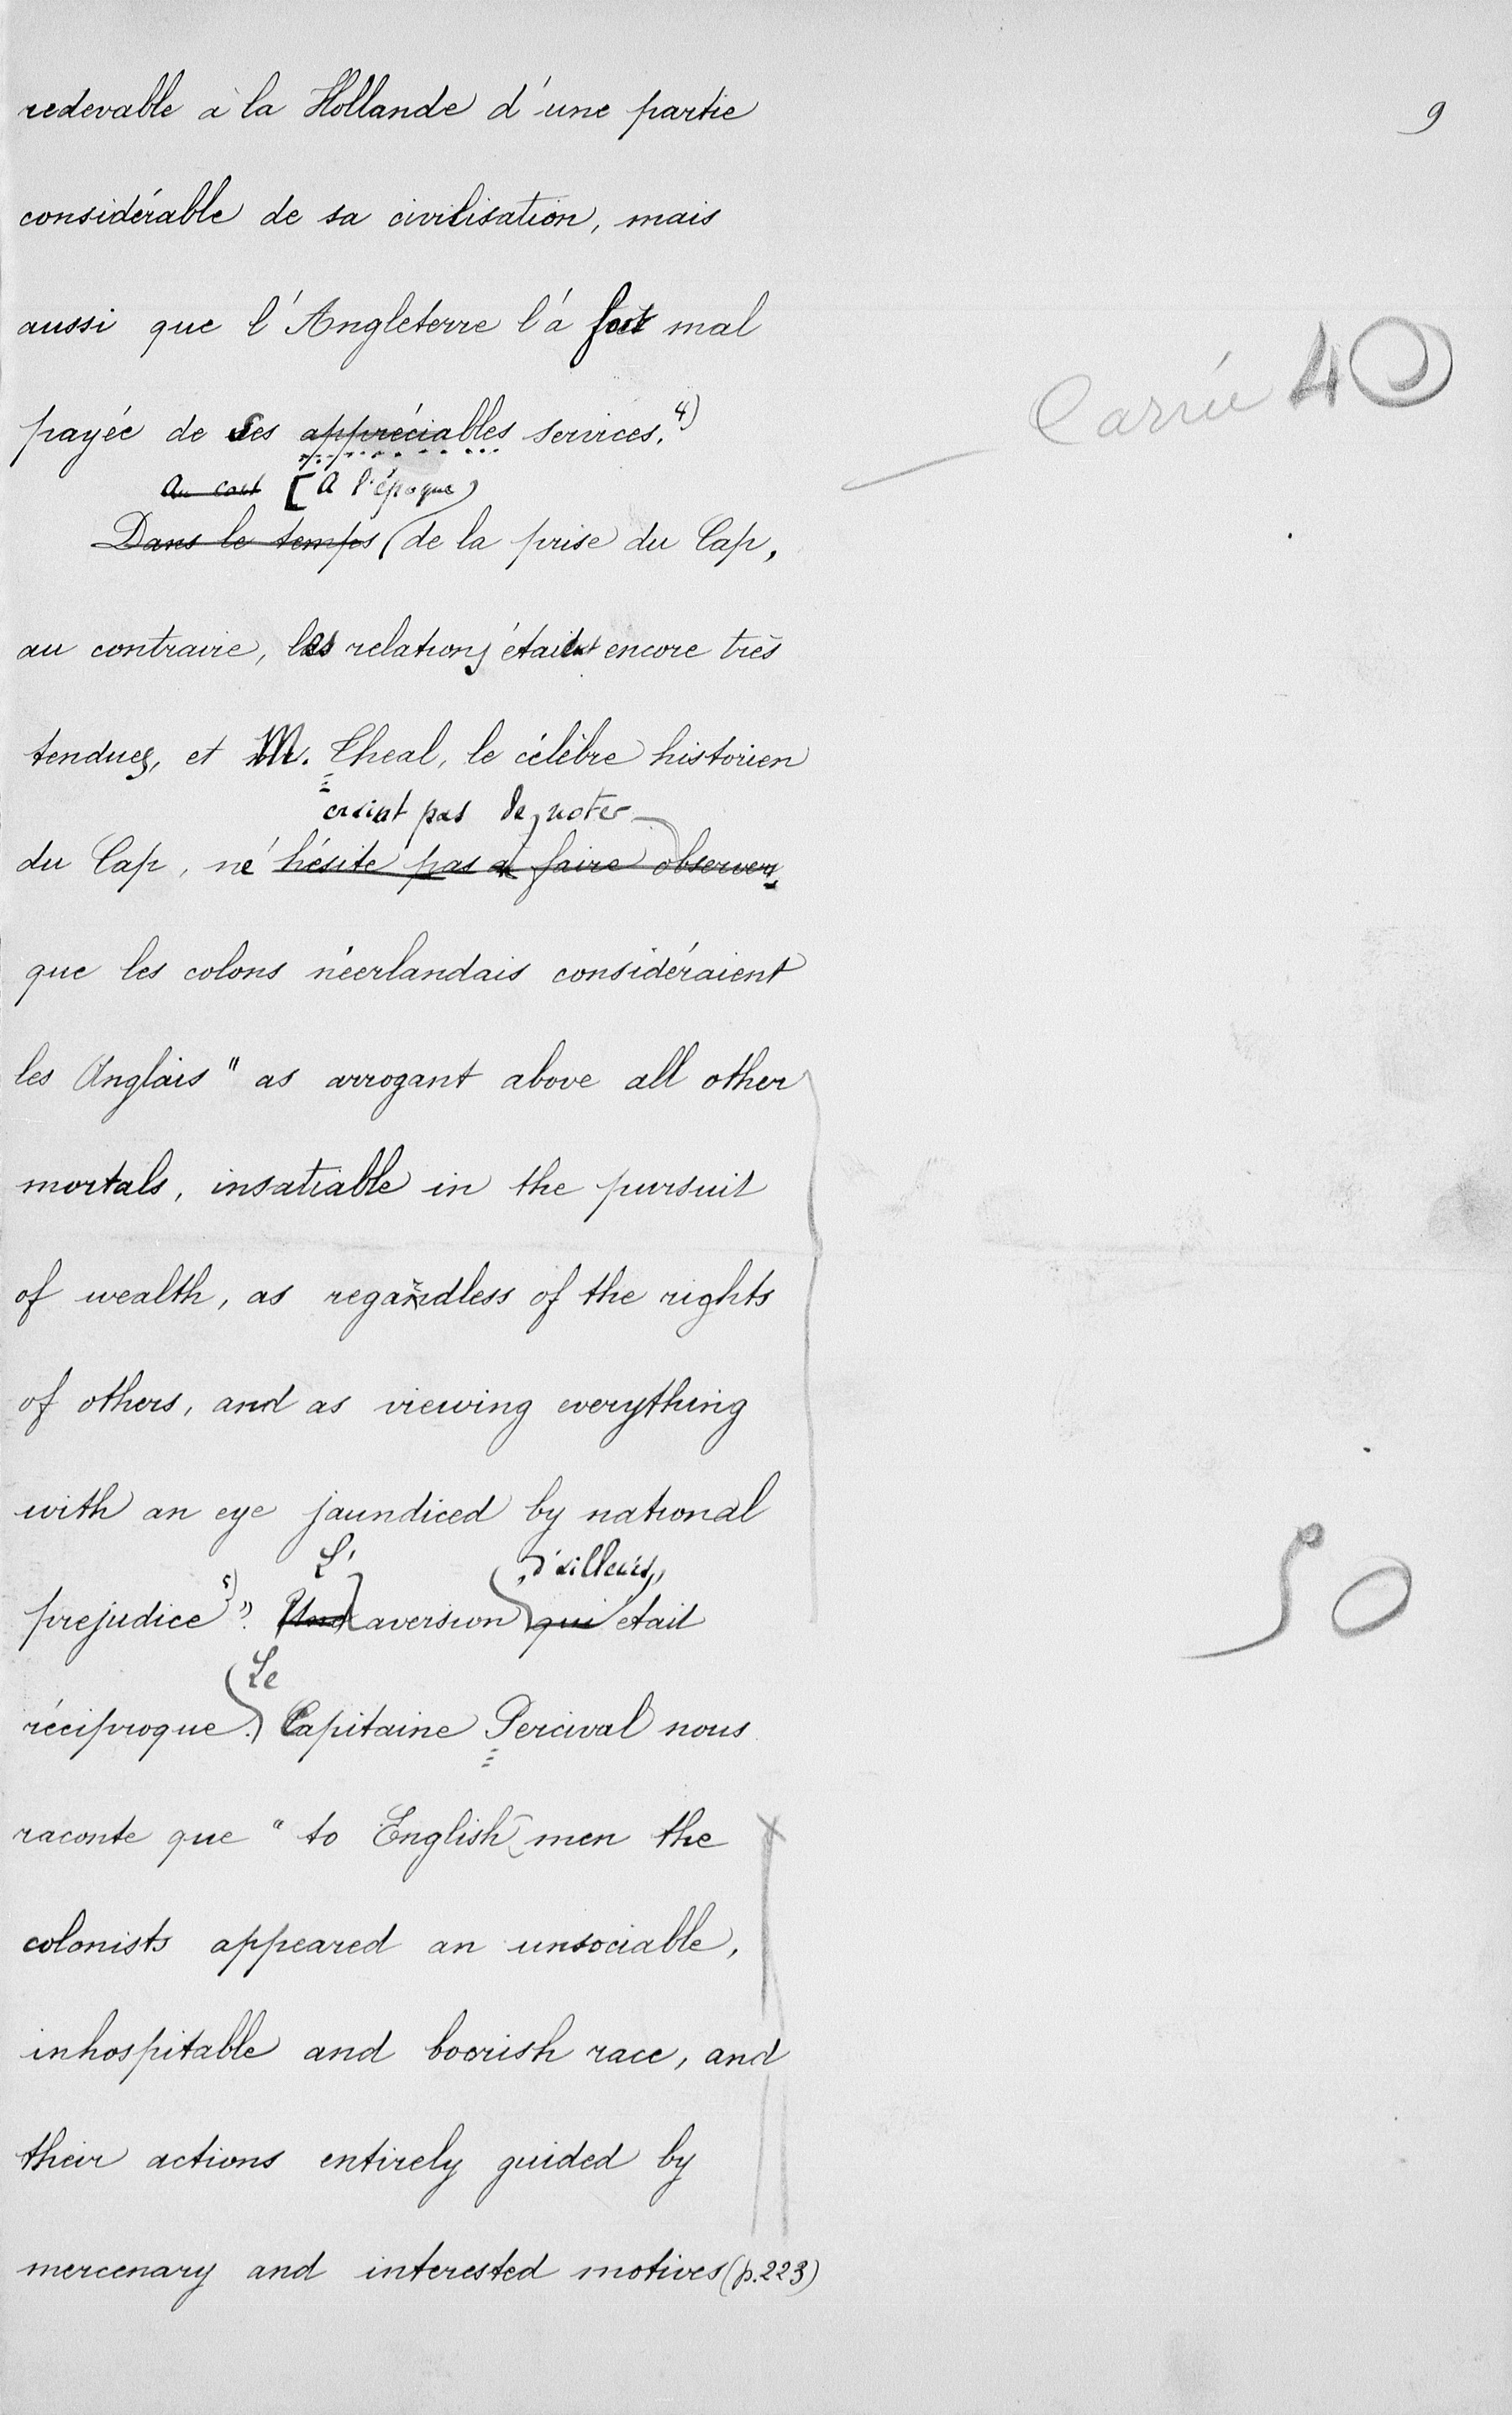 9
redevable à la Hollande d'une partie
considérable de sa civilisation, mais
aussi que l'Angleterre l'a fort mal
payée de ses appréciables services. 4)
Carrée 40
Au [A l'époque
Dans le temps de la prise du Cap,
au contraire, les relations étaient encore très
tendues, et M. Theal, le célèbre historien
craint pas de noter
du Cap, ne hésite pas à faire observer
que les colons néerlandais considéraient
les Anglais "as arrogant above all other
mortals, insatiable in the pursuit
of wealth, as regardless of the rights
of others, and as viewing everything
with an eye jaundiced by national
L' d'ailleurs,
prejudice 5)". Une aversion qui était
50
Le
réciproque. Capitaine Percival nous
raconte que "to English men the
colonists appeared an unsociable,
inhospitable and boorish race, and
their actions entirely guided by
mercenary and interested motives (p. 223)